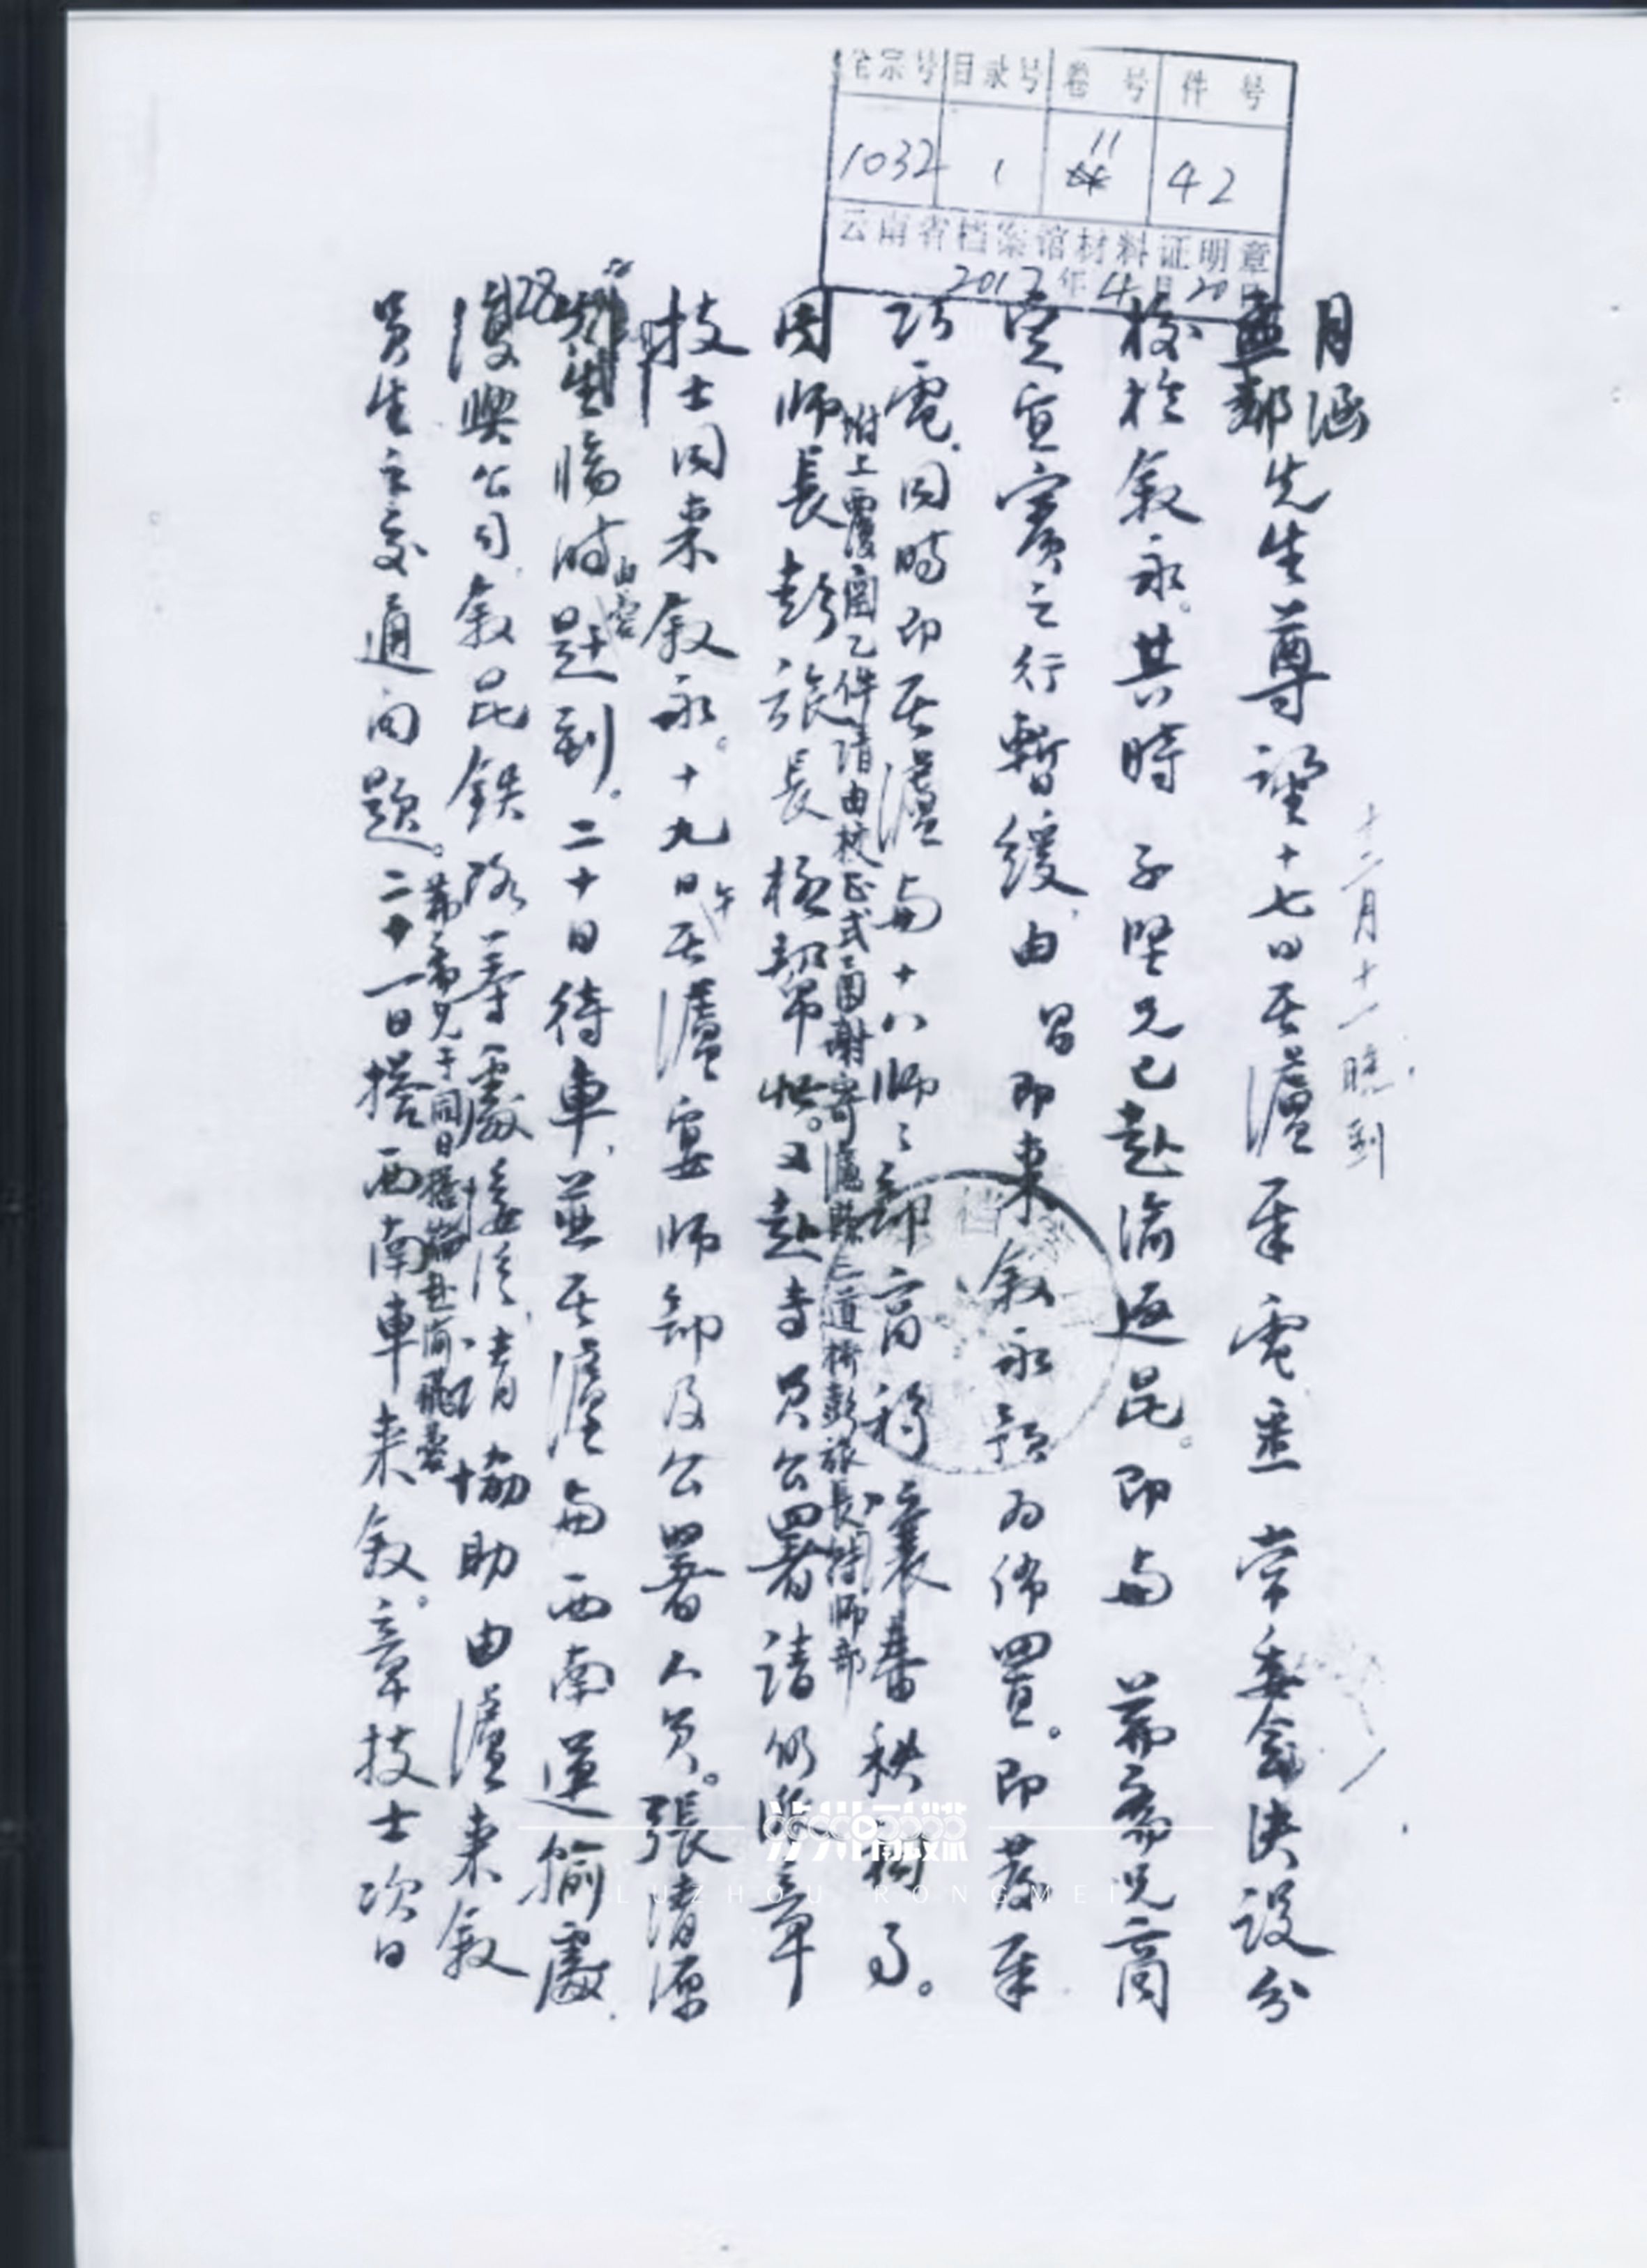 全宗号 目录号 卷号 件号
1032 1 11 42
云南省档案馆材料证明章
2017年4月20日
十二月十一晚到
月涵
孟鄰先生尊鑒十七日在瀘奉電悉常委會決設分
校於敘永。其時子堅兄已赴渝返昆。即與蒂齋兄商
定宜賓之行暫緩,由習即來敘永預為佈置。即發奉
巧電。同時即在瀘與十八師之部商移讓春秋祠事。
附上覆函乙件請由校正式函謝寄瀘縣三道橋彭旅長轉師部
周師長彭旅長極幫忙。又赴專員公署請仍派章
技士同來敘永。十九日午在瀘宴師部及公署人員。張清源
鄭生臨時由雲趕到。二十日待車,並在瀘與西南運輸處
28
復興公司敘昆鉄路等處接洽,請協助由瀘來敘
員生之交通問題。二十一日搭西南車來敘。章技士次日
蒂齋兄于同日搭輪赴渝飛雲
档
LUZHOU RONGMEI